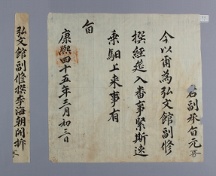 弘文館副修撰李海朝開拆
右副承旨
今以甯為弘文館副修
撰經是入番事緊斯速
乘馹上來事有
旨
康熙四十五年三月初三日